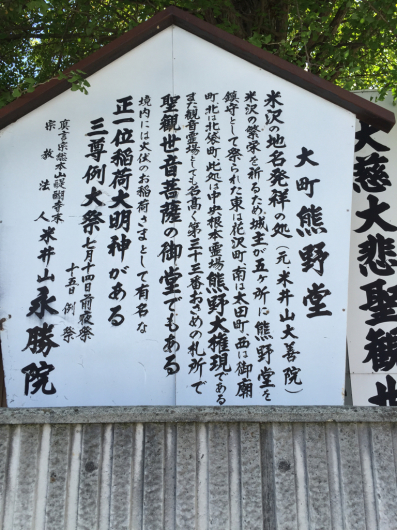 大町熊野堂
米沢の地名発祥の処(元 米井山大善院)
米沢の繁栄を祈るため城主が五ヶ所に熊野堂を
鎮守として祭られた東は花沢町、南は太田町、西は御廟
町、北は北袋町、此処は中央根本霊場熊野大権現である
また観音霊場としても名高く第三十三番おさめの札所で
聖観世音菩薩の御堂でもある
境内には火伏のお稲荷さまとして有名な
正一位稲荷大明神がある
三尊例大祭 七月十四日前夜祭
十五日例祭
真言宗総本山醍醐寺末
宗教法人 米井山永勝院
大慈大悲聖観世